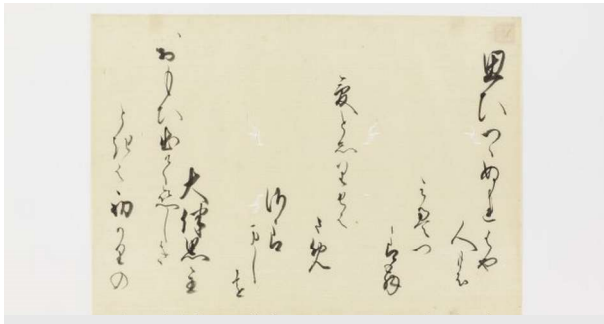 思ひつゝぬれはや
人の
みえつ
らむ
夢としりせは
さめ
さら
まし
を
大伴黒主
おもひ出て恋しき
ときは初かりの